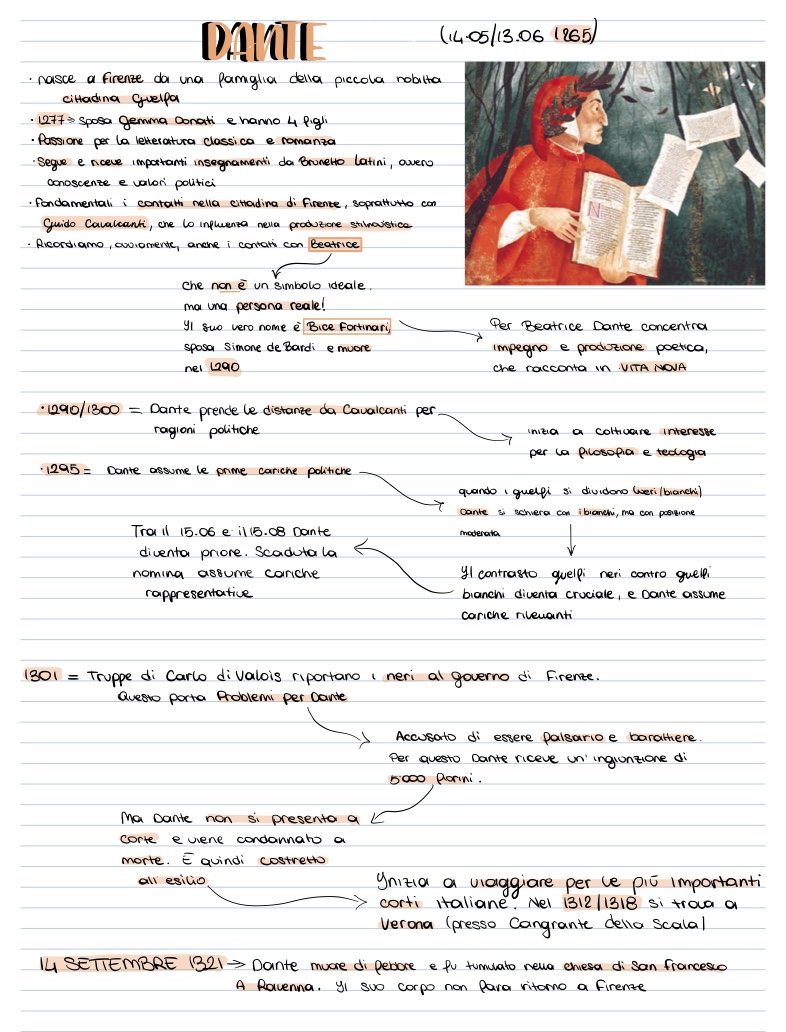 DANTE (14.05/13.06 1265)
· nasce a Firenze da una famiglia della piccola nobiltà
cittadina Guelfa
· 1277 → sposa Gemma Donati e hanno 4 figli
· Passione per la letteratura classica e romanza
· Segue e riceve importanti insegnamenti da Brunetto Latini, ovvero
conoscenze e valori politici
· Fondamentali i contatti nella cittadina di Firenze, soprattutto con
Guido Cavalcanti, che lo influenza nella produzione stilnovistica
· Ricordiamo, ovviamente, anche i contatti con Beatrice
Che non è un simbolo ideale.
ma una persona reale!
Il suo vero nome è Bice Fortinari,
sposa Simone de Bardi e muore
nel 1290
Per Beatrice Dante concentra
impegno e produzione poetica,
che racconta in VITA NOVA
· 1290/1300 = Dante prende le distanze da Cavalcanti per
ragioni politiche
inizia a coltivare interesse
per la filosofia e teologia
· 1295 = Dante assume le prime cariche politiche
quando i guelfi si dividono (neri/bianchi)
Dante si schiera con i bianchi, ma con posizione
moderata
Il contrasto guelfi neri contro guelfi
bianchi diventa cruciale, e Dante assume
cariche rilevanti
Tra il 15.06 e il 15.08 Dante
diventa priore. Scaduta la
nomina assume cariche
rappresentative
1301 = Truppe di Carlo di Valois riportano i neri al governo di Firenze.
Questo porta Problemi per Dante
Accusato di essere falsario e barattiere.
Per questo Dante riceve un'ingiunzione di
5'000 fiorini.
Ma Dante non si presenta a
corte e viene condannato a
morte. È quindi costretto
all'esilio
Inizia a viaggiare per le più importanti
corti italiane. Nel 1312/1318 si trova a
Verona (presso Cangrante della Scala)
14 SETTEMBRE 1321 → Dante muore di febbre e fu tumulato nella chiesa di San Francesco
A Ravenna. Il suo corpo non farà ritorno a Firenze